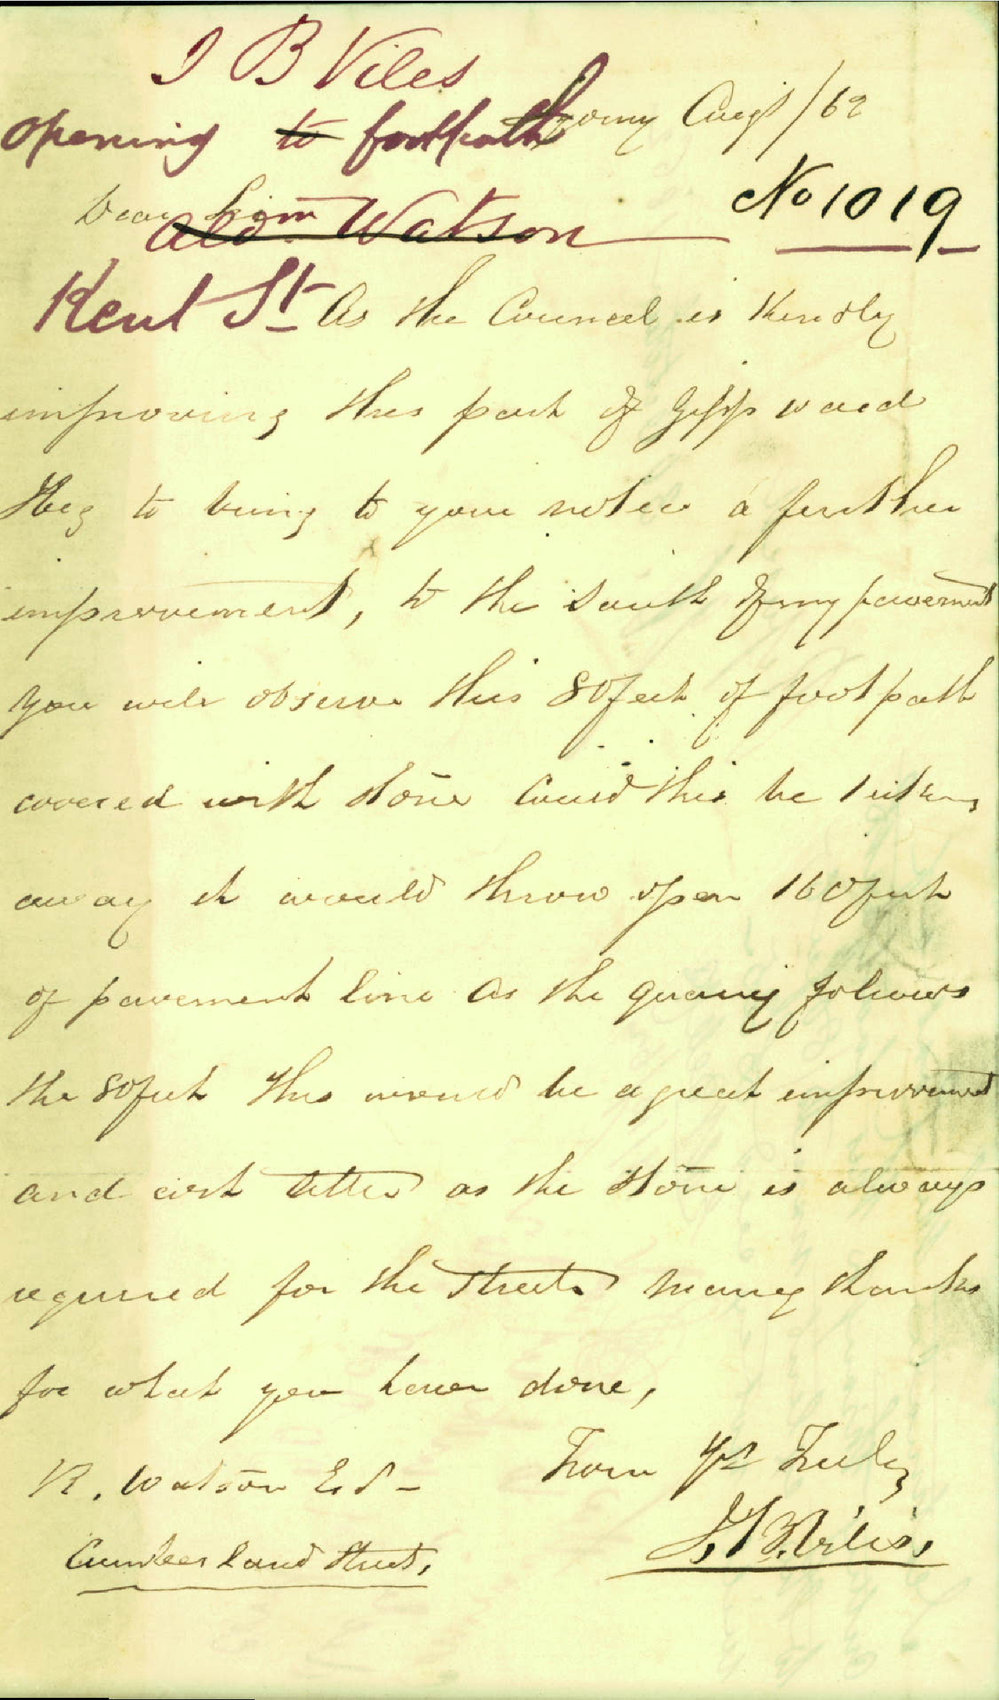 J B Viles
opening to footpath
Aug't /62
Dear Sir
Aldm Watson
No 1019
Kent St
As the Council is kindly
improving this part of Gipps ward
I beg to bring to your notice a further
improvement, to the South of my pavement
you will observe this 80 feet of footpath
covered with stone Could this be taken
away it would throw open 160 feet
of pavement line as the quarry follows
the 80 feet this would be a great improvement
and cost little as the stone is always
required for the Streets many thanks
for what you have done,
From Yrs Truly
R. Watson Esd -
J B Viles,
Cumberland Street,